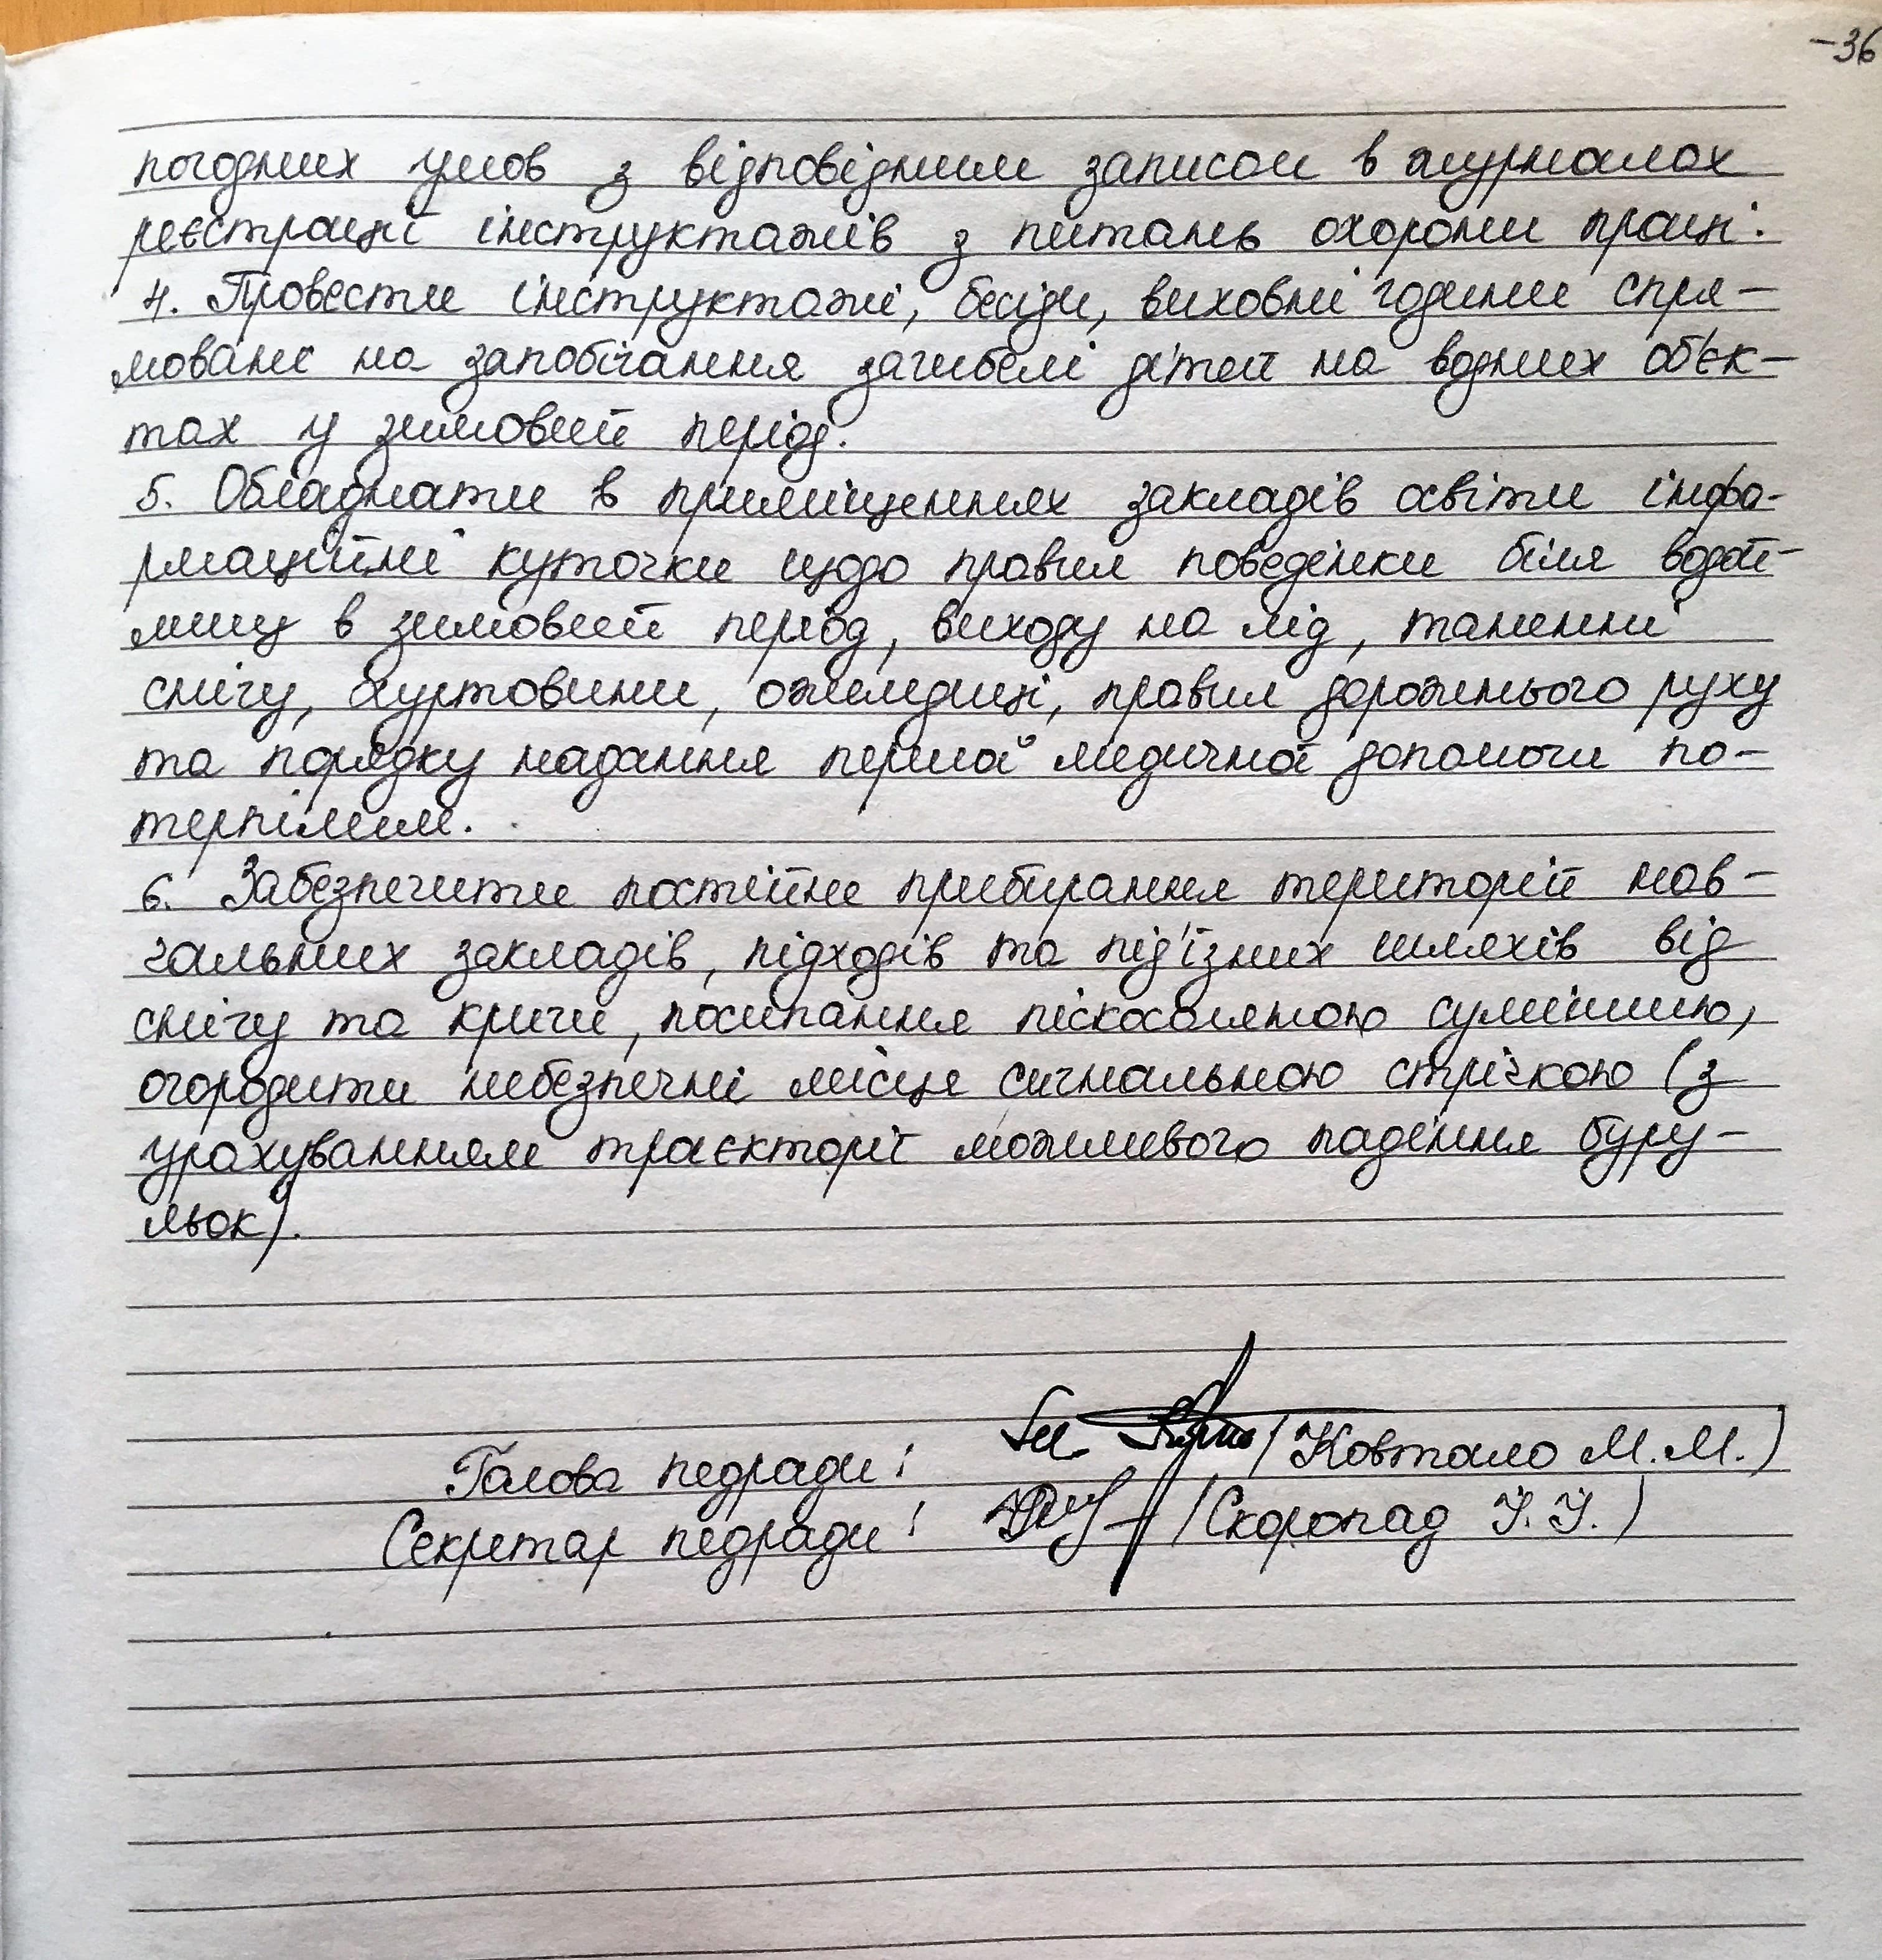 -36
погодних умов з відповідним записом в журналах
реєстрації інструктажів з питань охорони праці.
4. Провести інструктажі, бесіди, виховні години спря-
мовані на запобігання загибелі дітей на водних об'єк-
тах у зимовий період.
5. Обладнати в приміщеннях закладів освіти інфо-
рмаційні куточки щодо правил поведінки біля водой-
мищ в зимовий період, виходу на лід, таненні
снігу, хуртовини, ожеледиці, правил дорожнього руху
та порядку надання першої медичної допомоги по-
терпілим.
6. Забезпечити постійне прибирання територій нав-
чальних закладів, підходів та під'їзних шляхів від
снігу та криги, посипання піскосоляною сумішшю,
огородити небезпечні місця сигнальною стрічкою (з
урахуванням траєкторії можливого падіння буру-
льок).
Голова педради: (Ковтало М.М.)
Секретар педради: (Скоропад І.І.)